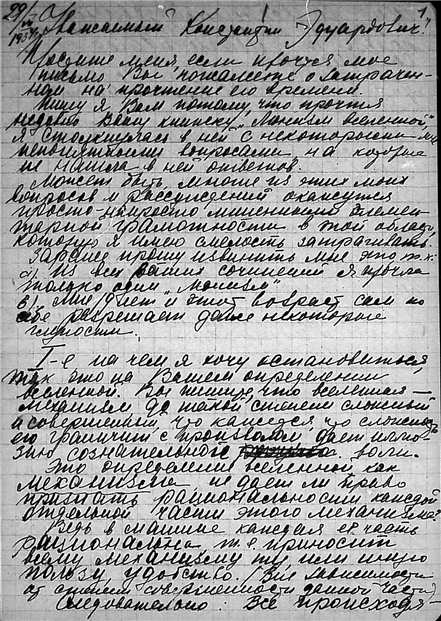 29/
1
Уважаемый Константин Эдуардович!
Простите меня, если прочтя мое
письмо Вы пожалеете о затрачен-
ном на прочтение его времени.
Пишу я Вам потому, что прочтя
недавно Вашу книжку „Монизм вселенной"
я столкнулась в ней с некоторыми
непонятными вопросами на которые
не нашла в ней ответов.
Может быть многие из этих моих
вопросов и рассуждений окажутся
просто-напросто лишенными элемен-
тарной грамотности в той области
которую я имею смелость затрагивать.
Заранее прошу извинить мне это т.к.
а) Из всех ваших сочинений я прочла
только один „Монизм"
в) Мне лет и этот возраст сам по
себе разрешает даже некоторые
глупости.
I-е на чем я хочу остановиться
так это на Вашем определении
вселенной. Вы пишите, что вселенная —
механизм до такой степени сложный
и совершенный, что кажется, что сложность
его граничит с произволом дает иллю-
зию сознательной воли.
Это определение вселенной как
механизма не дает ли право
признать рациональность каждой
отдельной части этого механизма?
Ведь в машине каждая её часть
рациональна т.е. приносит
всему механизму ту или иную
пользу, удобство. (Вне зависимости
от степени совершенности данной части)
Следовательно: Все происходя-